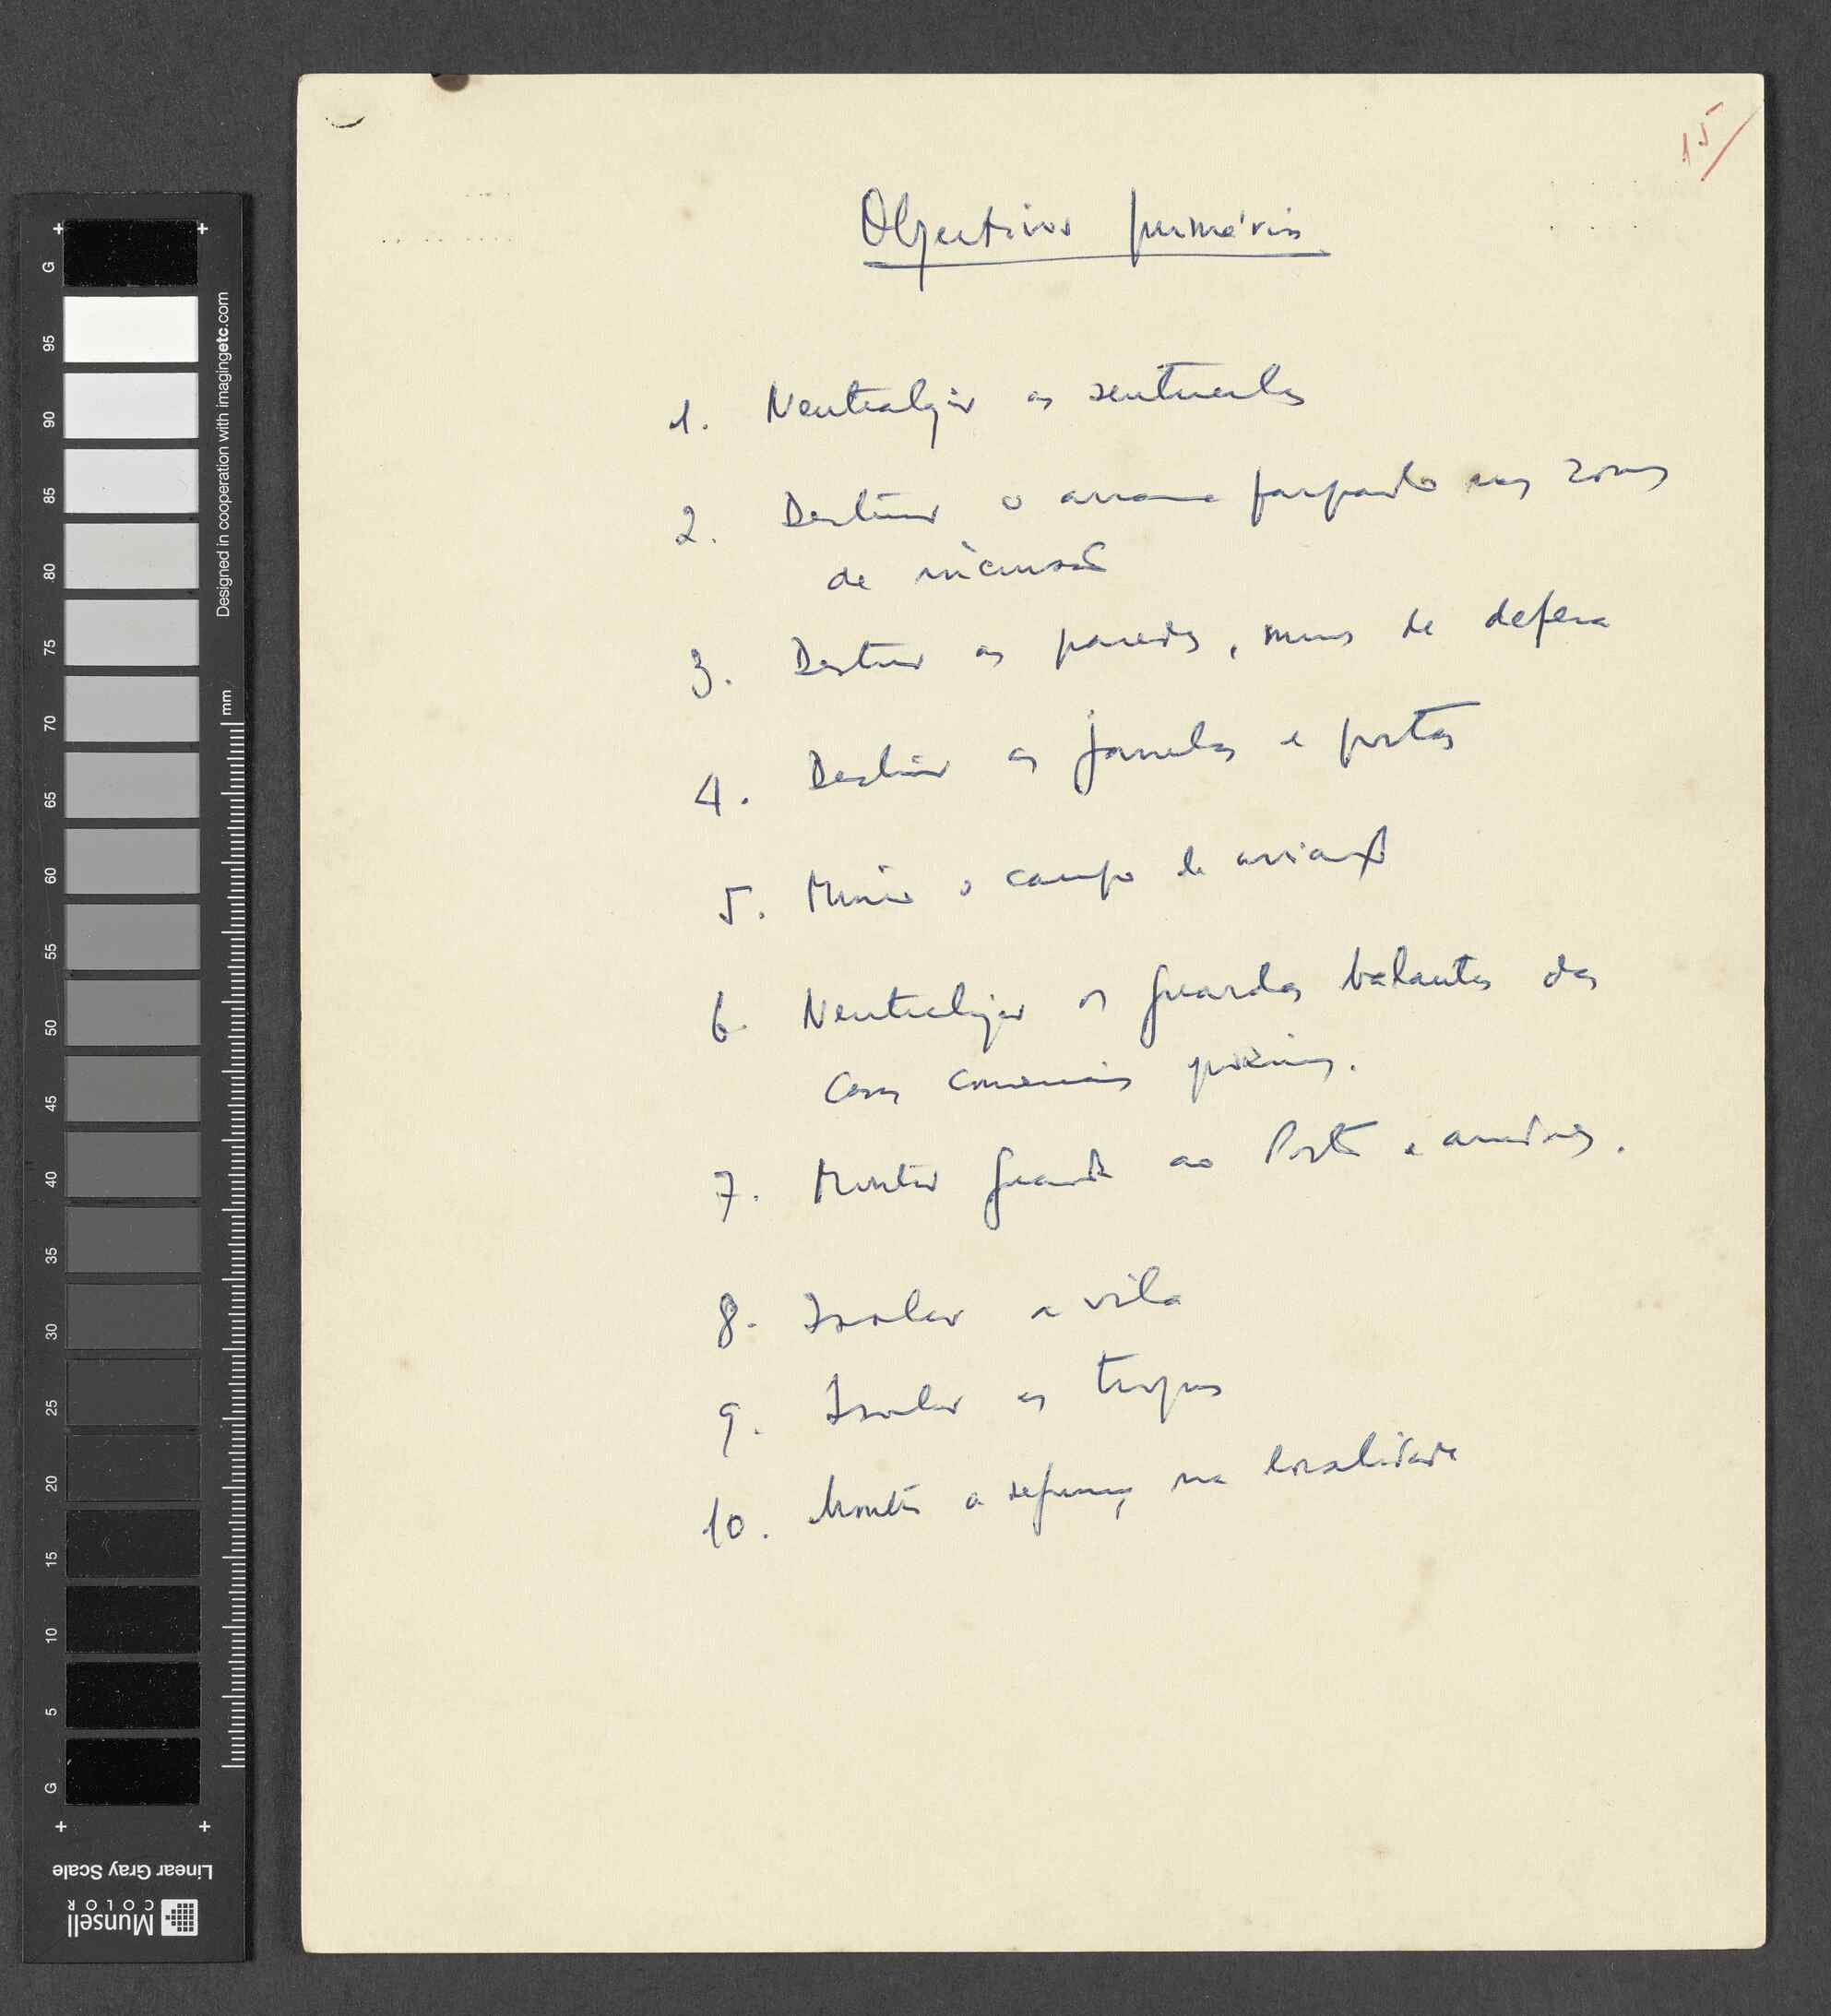 15
Objectivos primários
1. Neutralizar as sentinelas
2. Destruir o arame farpado nas zonas
de incursão
3. Destruir as paredes, muros de defesa
4. Destruir as janelas e portas
5. Minar o campo de aviação
6. Neutralizar os guardas balantas das
casas comerciais próximas.
7. Montar guarda ao Porto e arredores.
8. Isolar a vila
9. Isolar as tropas
10. Montar a segurança na localidade
G
95
90
85
80
75
70
65
60
55
50
45
40
35
30
25
20
15
10
5
G
Designed in cooperation with imagingetc.com
mm
Linear Gray Scale
Munsell
COLOR